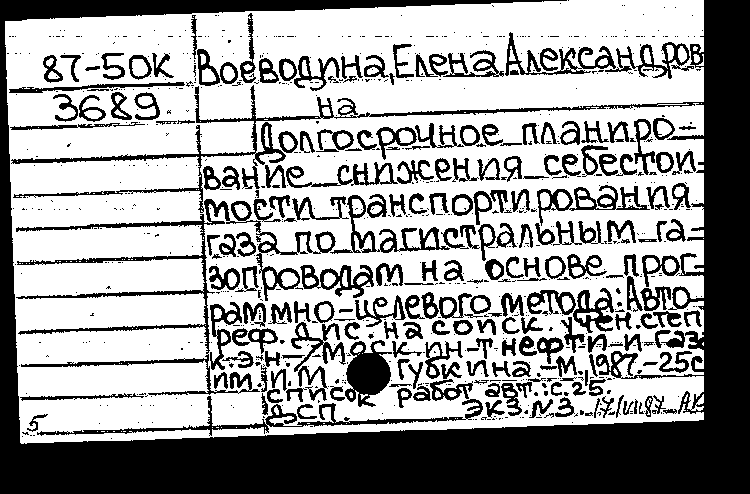 87-50К Воеводина, Елена Александров
3689 на
Долгосрочное планиро-
вание снижения себестои-
мости транспортирования
газа по магистральным га-
зопроводам на основе прог-
раммно-целевого метода: Авто-
реф. дис. на соиск. учен. степ
к.э.н. - / Моск. ин-т нефти и газа
им. И.М. Губкина. - М., 1987. - 25с
список работ авт.: с. 25.
ДСП. ЭКЗ. №3. 17/VI.87 АК
5